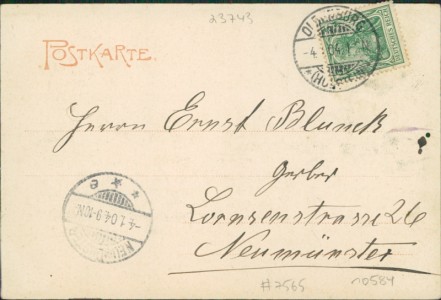 23743
POSTKARTE.
OLDENBURG
-4.1.04.
(HOLSTEIN)
DEUTSCHES REICH
Herrn Ernst Blunck
Gerber
Lornsenstrasse 26
Neumünster
NEUMÜNSTER
-4.1.04.9-10N.
* * e
#2565
no584